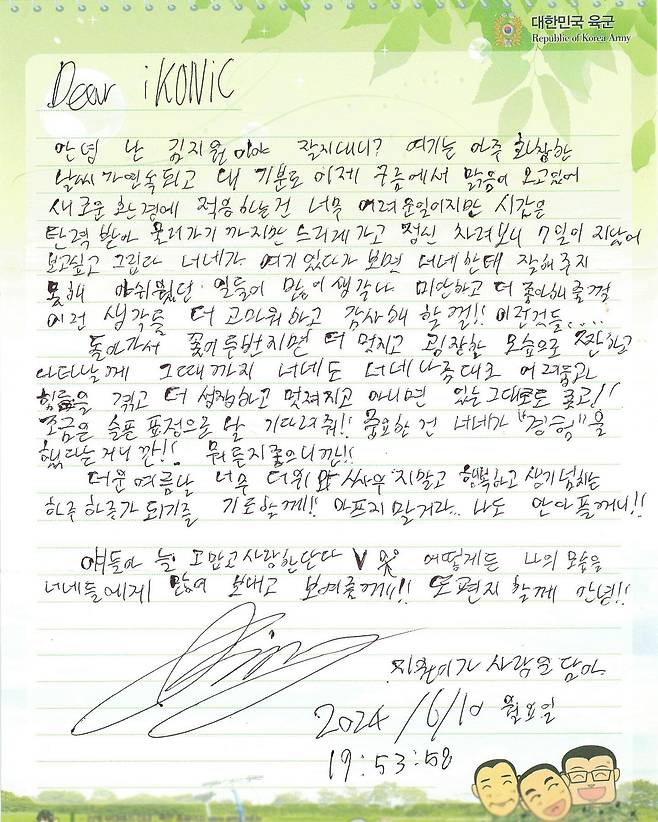 대한민국 육군
Republic of Korea Army
Dear iKONIC
안녕 난 김지원이야 잘지내니? 여기는 아주 화창한
날씨가 연속되고 내 기분도 이제 구름에서 맑음이 오고있어
새로운 환경에 적응하는건 너무 어려운일이지만 시간은
탄력 받아 굴러가기 까지만 느리게 가고 정신 차려보니 7일이 지났어
보고싶고 그립다 너네가 여기 있다가 보면 너네한테 잘해주지
못해 아쉬웠던 일들이 많이 생각나 미안하고 더 좋아해 줄껄
이런 생각들 더 고마워하고 감사해 할껄!! 이런것들....
돌아가서 꽃이 두번지면 더 멋지고 굉장한 모습으로 짠하고
나타날게 그때까지 너네도 너네 나름대로 어려움과
힘듦을 겪고 더 성장하고 멋져지고 아니면 있는 그대로도 좋고!!
조금은 슬픈 표정으로 날 기다려줘!! 중요한 건 너네가 "경험"을
했다는거니깐!! 뭐든지좋으니깐!!
더운 여름날 너무 더위와 싸우지말고 행복하고 생기넘치는
하루 하루가 되기를 기도할게!! 아프지 말거라.. 나도 안아플꺼니!!
얘들아 늘 고맙고 사랑한단다 V 어떻게든 나의 모습을
너네들에게 많이 보내고 보여줄께!!! 또 편지 할께 안녕!!
지원이가 사랑을 담아
2024/6/10 월요일
19:53:58